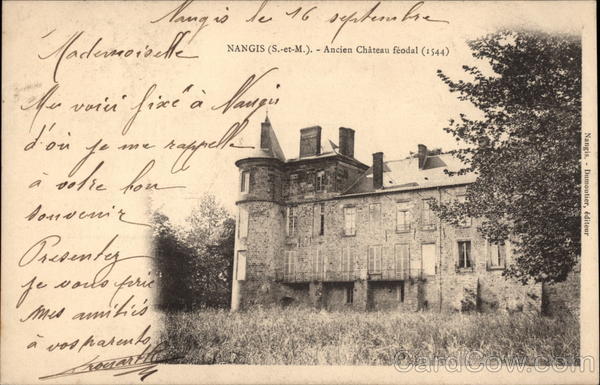 Nangis le 16 septembre
Mademoiselle
NANGIS (S.-et-M.). - Ancien Château féodal (1544)
Me voici fixé à Nangis
d'où je me rappelle
à votre bon
souvenir
Presentez
je vous prie
Mes amitiés
à vos parents
Nangis. - Dumoutier, éditeur
CardCow.com